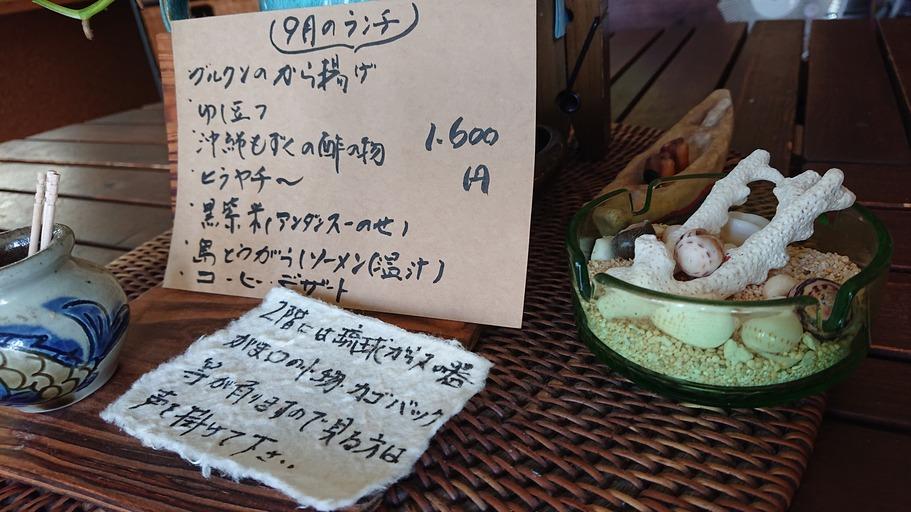 9月のランチ
グルクンのから揚げ
・ゆし豆フ
・沖縄もずくの酢の物
・ヒラヤチ～
・黒紫米(アンダンスーのせ)
・島とうがらしソーメン(温汁)
・コーヒー・デザート
1.600
円
2階には琉球ガラス
がま口の小物・カゴバック
等が有りますので見る方は
声を掛けて下さい。